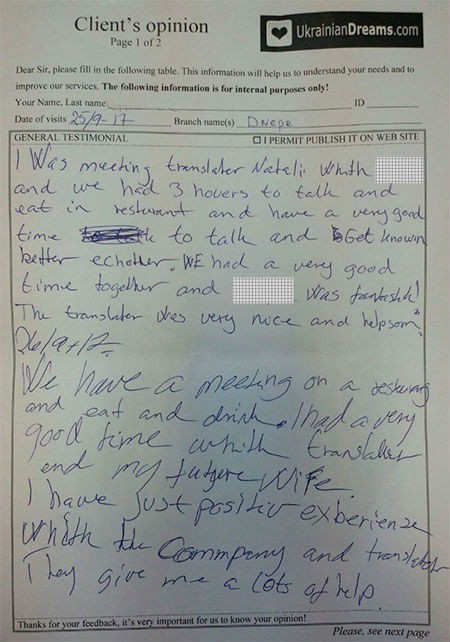 Client's opinion
Page 1 of 2
UkrainianDreams.com
Dear Sir, please fill in the following table. This information will help us to understand your needs and to
improve our services. The following information is for internal purposes only!
Your Name, Last name ID
Date of visits 25/9-17 Branch name(s) Dnepr
GENERAL TESTIMONIAL I PERMIT PUBLISH IT ON WEB SITE
I Was meeting translater Natali Whith
and we had 3 hovers to talk and
eat in resturant and have a very good
time to talk and Get knowin
better echother. WE had a very good
time together and Was fantastik!
The translater Was very nice and helpsom,
26/9-17.
We have a meeting on a resturang
and eat and drink. I had a very
good time whith translater
end my future Wife.
I have just positiv experience
Whith the Commpany and translator
They give me a lots of help.
Thanks for your feedback, it's very important for us to know your opinion!
Please, see next page